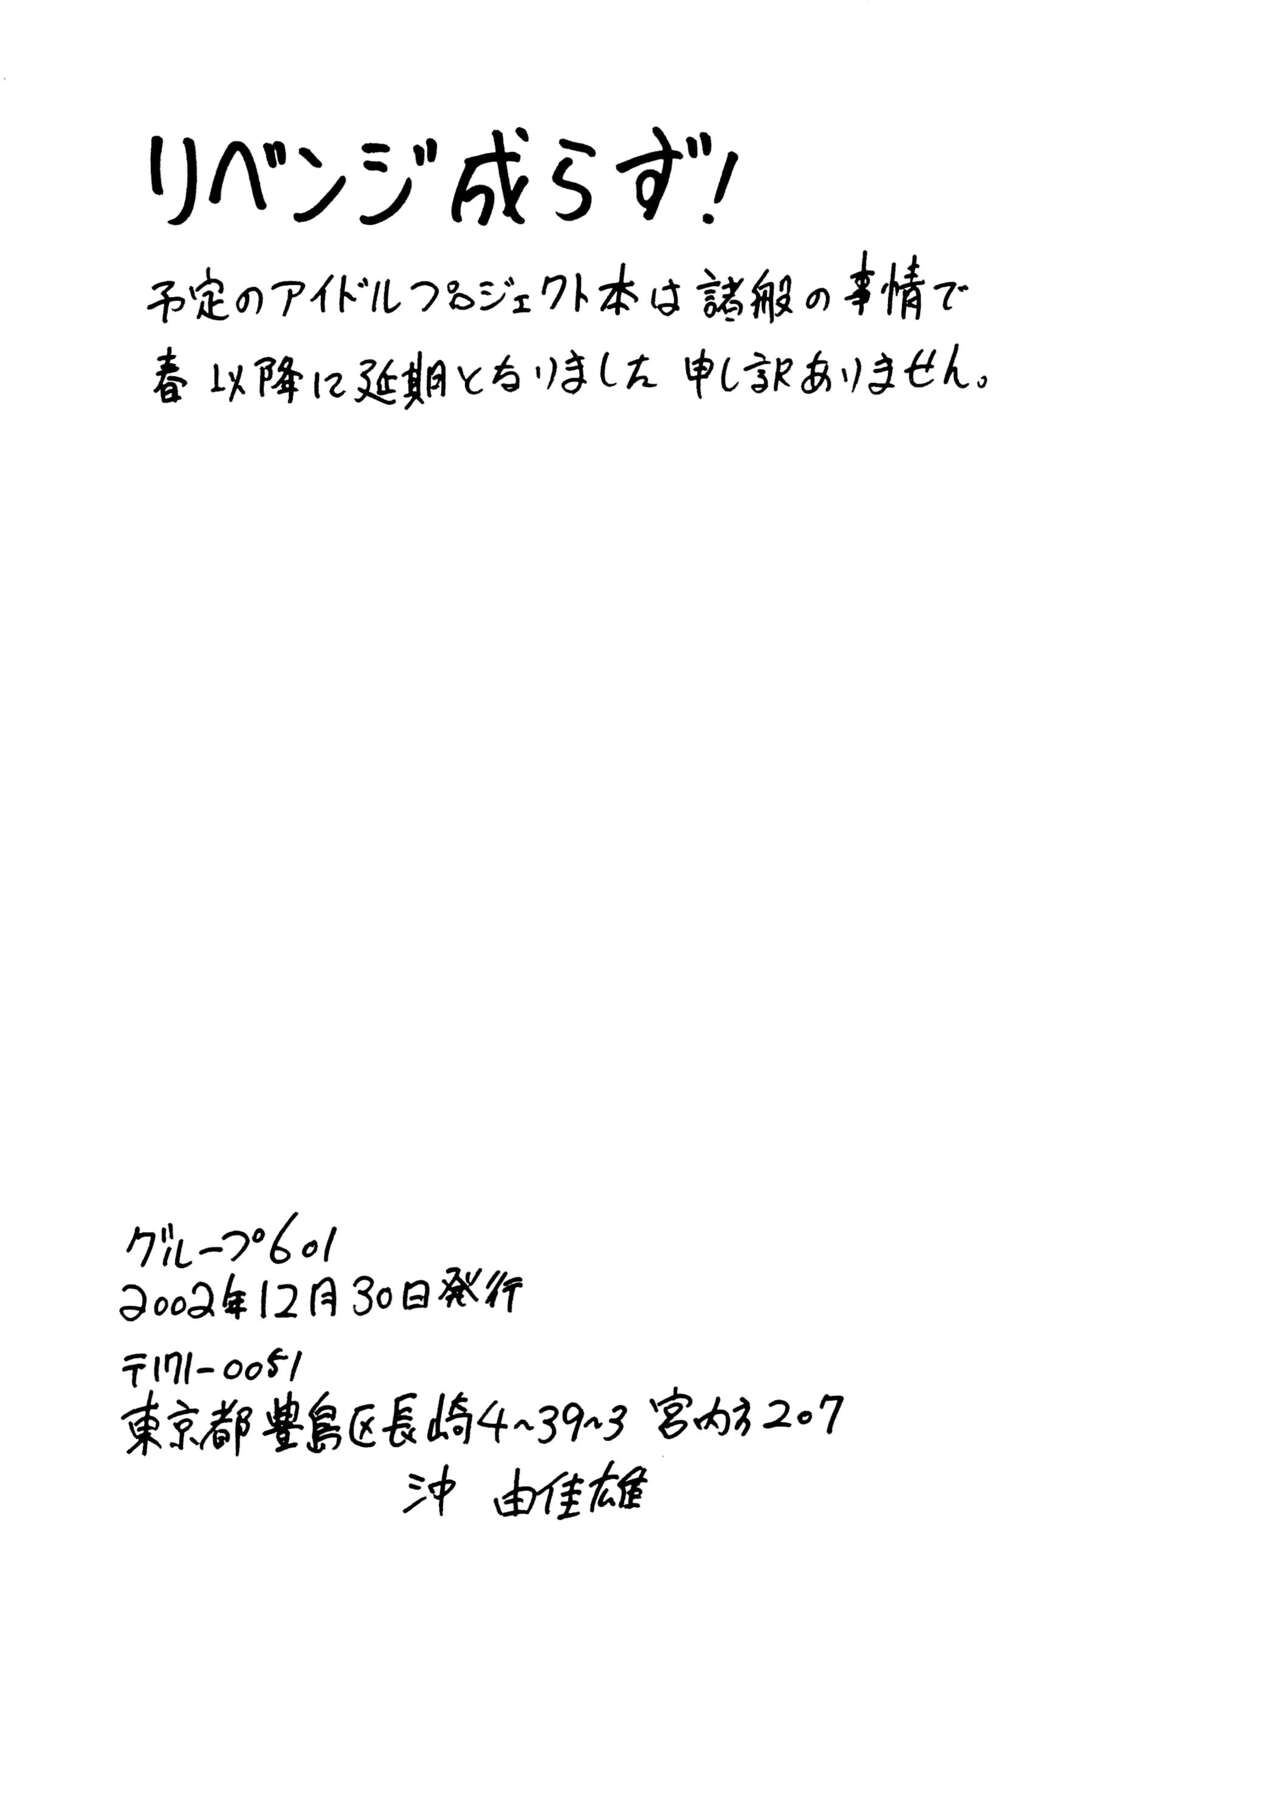 リベンジ成らず!
予定のアイドルプロジェクト本は諸般の事情で
春以降に延期となりました 申し訳ありません。
グループ601
2002年12月30日発行
〒171-0051
東京都豊島区長崎4~39~3 宮内方207
沖 由佳雄